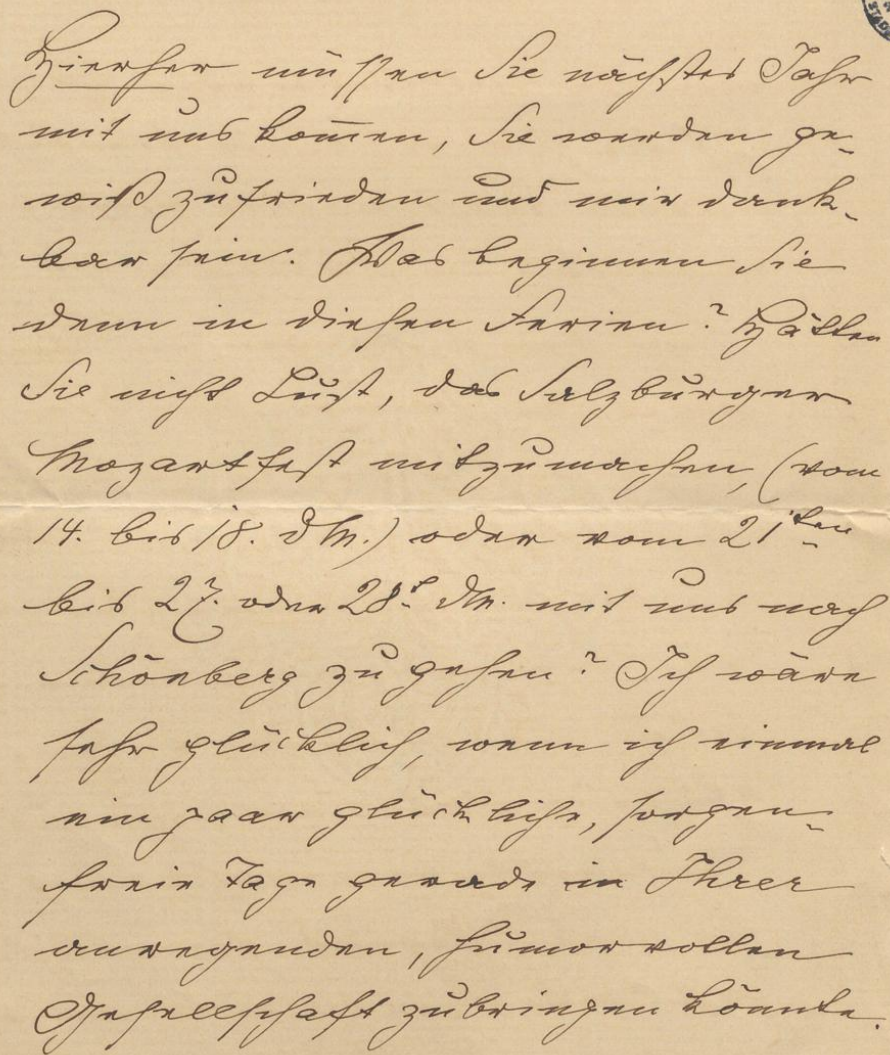 Hierher müssen Sie nächstes Jahr
mit uns kom̄en, Sie werden ge-
wiß zufrieden und mir dank-
bar sein. Was beginnen Sie
denn in diesen Ferien? Hätten
Sie nicht Lust, das Salzburger
Mozartfest mitzumachen, (vom
14. bis 18. d M.) oder vom 21ten
bis 27. oder 28t. d M. mit uns nach
Schönberg zu gehen? Ich wäre
sehr glücklich, wenn ich einmal
ein paar glückliche, sorgen-
freie Tage gerade in Ihrer
anregenden, humorvollen
Gesellschaft zubringen könnte.